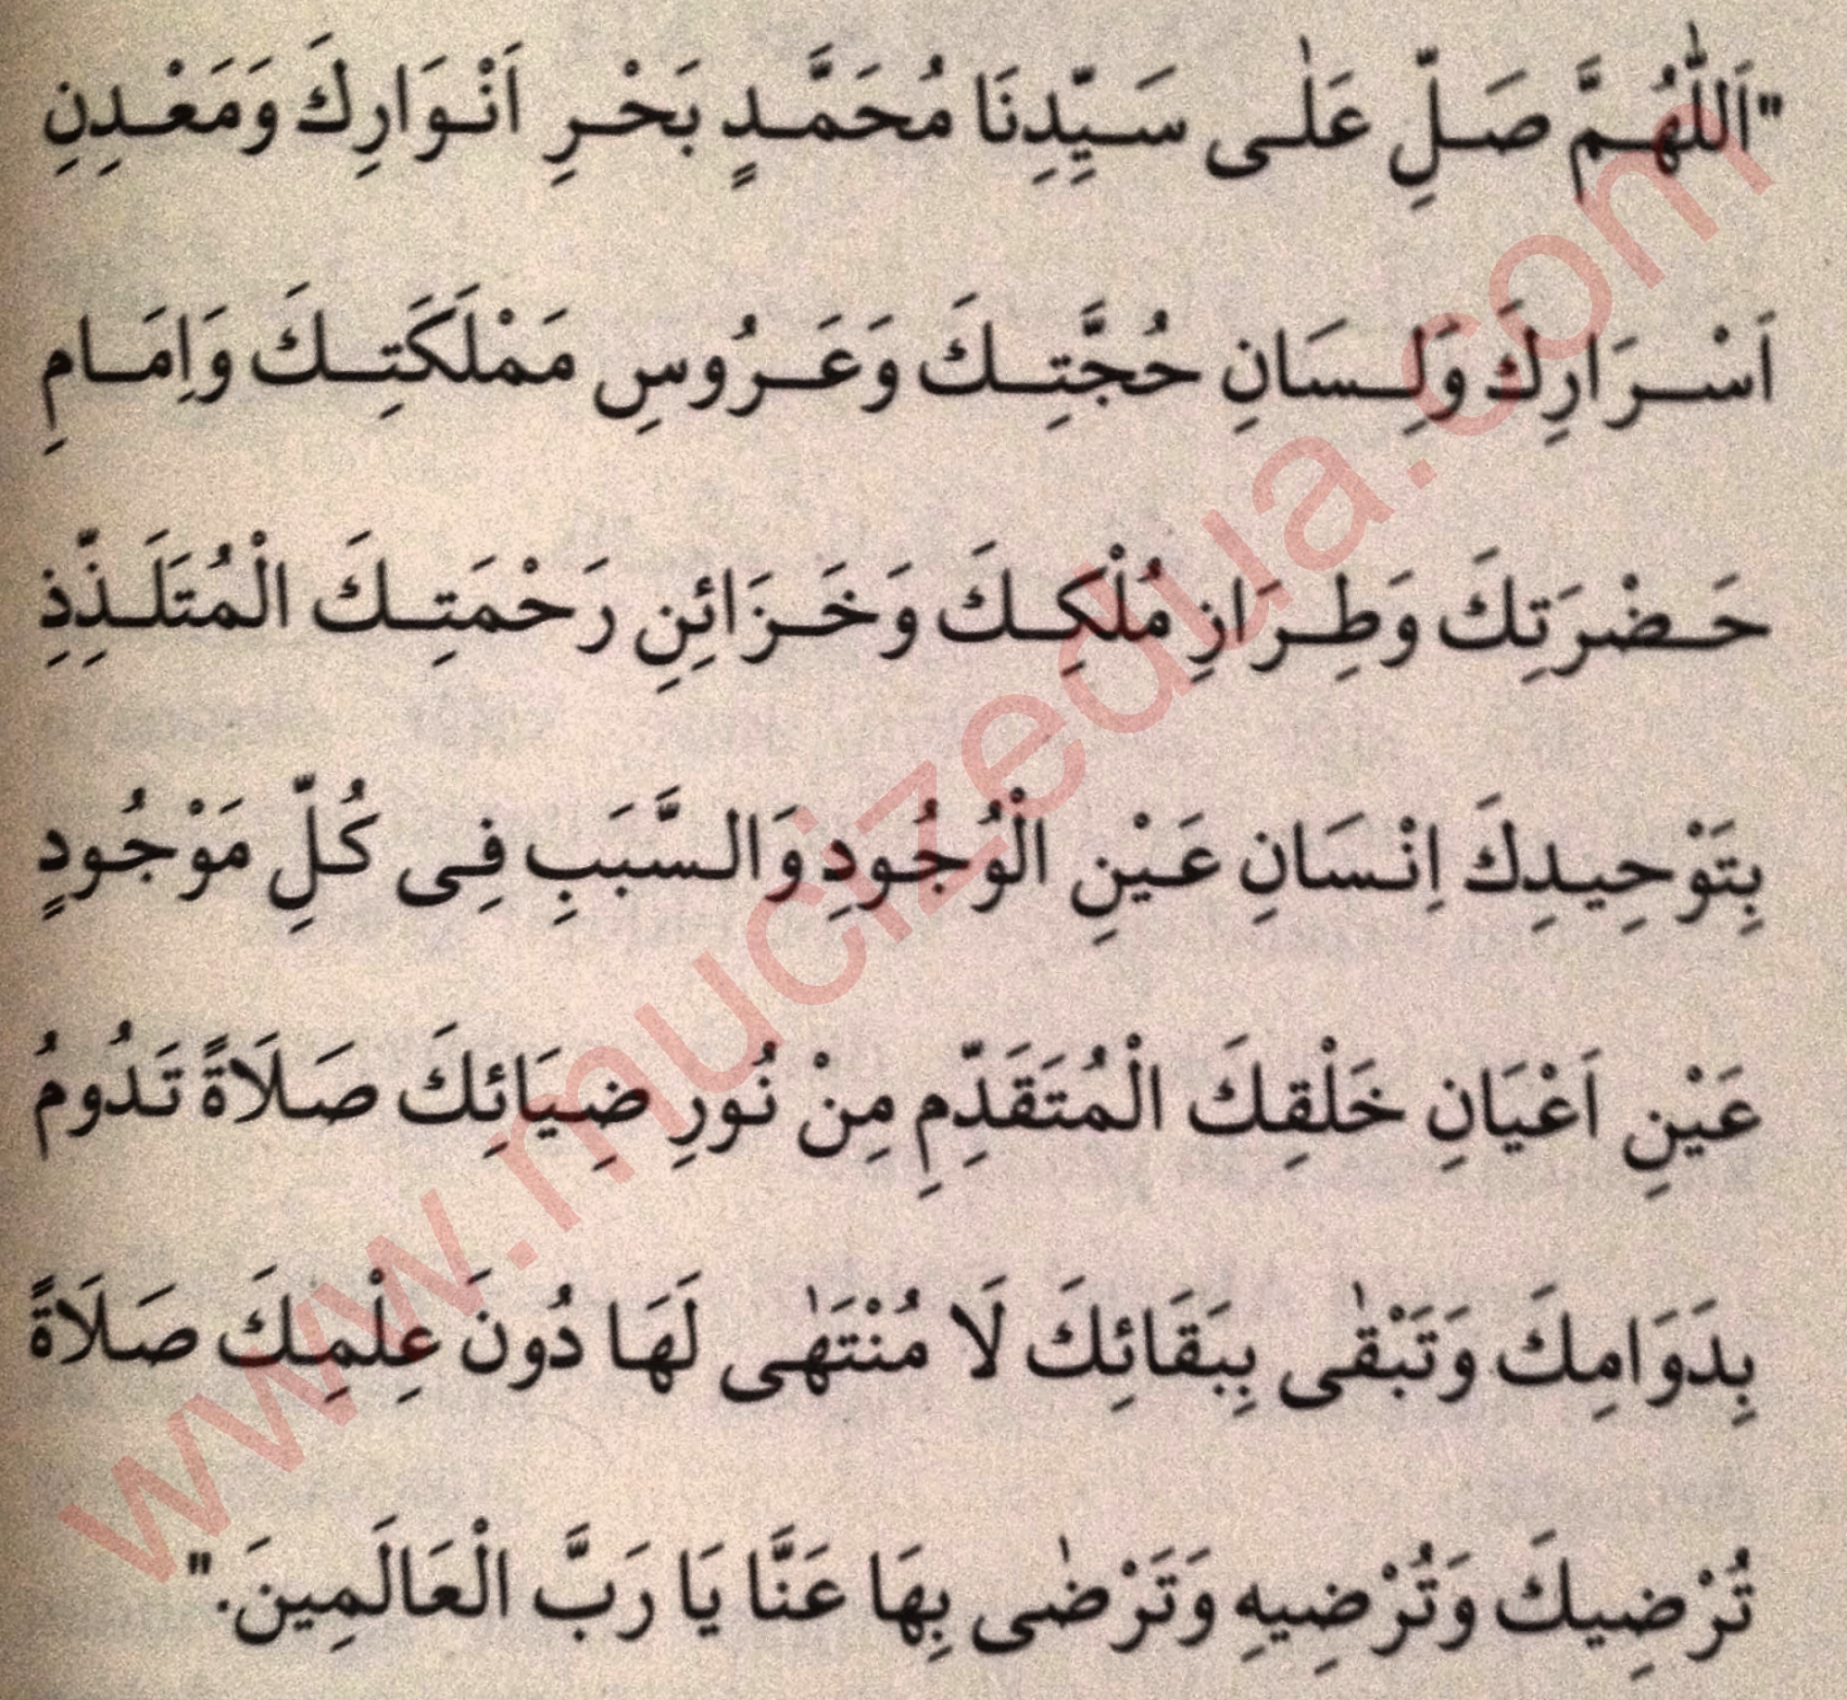 "اَللّٰهُمَّ صَلِّ عَلٰى سَيِّدِنَا مُحَمَّدٍ بَحْرِ اَنْوَارِكَ وَمَعْدِنِ
اَسْرَارِكَ وَلِسَانِ حُجَّتِكَ وَعَرُوسِ مَمْلَكَتِكَ وَاِمَامِ
حَضْرَتِكَ وَطِرَازِ مُلْكِكَ وَخَزَائِنِ رَحْمَتِكَ الْمُتَلَذِّذِ
بِتَوْحِيدِكَ اِنْسَانِ عَيْنِ الْوُجُودِ وَالسَّبَبِ فِى كُلِّ مَوْجُودٍ
عَيْنِ اَعْيَانِ خَلْقِكَ الْمُتَقَدِّمِ مِنْ نُورِ ضِيَائِكَ صَلَاةً تَدُومُ
بِدَوَامِكَ وَتَبْقٰى بِبَقَائِكَ لَا مُنْتَهٰى لَهَا دُونَ عِلْمِكَ صَلَاةً
تُرْضِيكَ وَتُرْضِيهِ وَتَرْضٰى بِهَا عَنَّا يَا رَبَّ الْعَالَمِينَ."
www.mucizedua.com